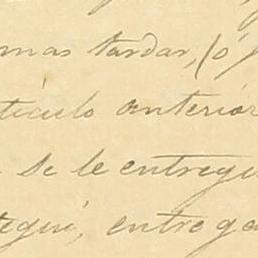 mas tardar, (ó
tículo anterior
se le entregu
tegui, entrega